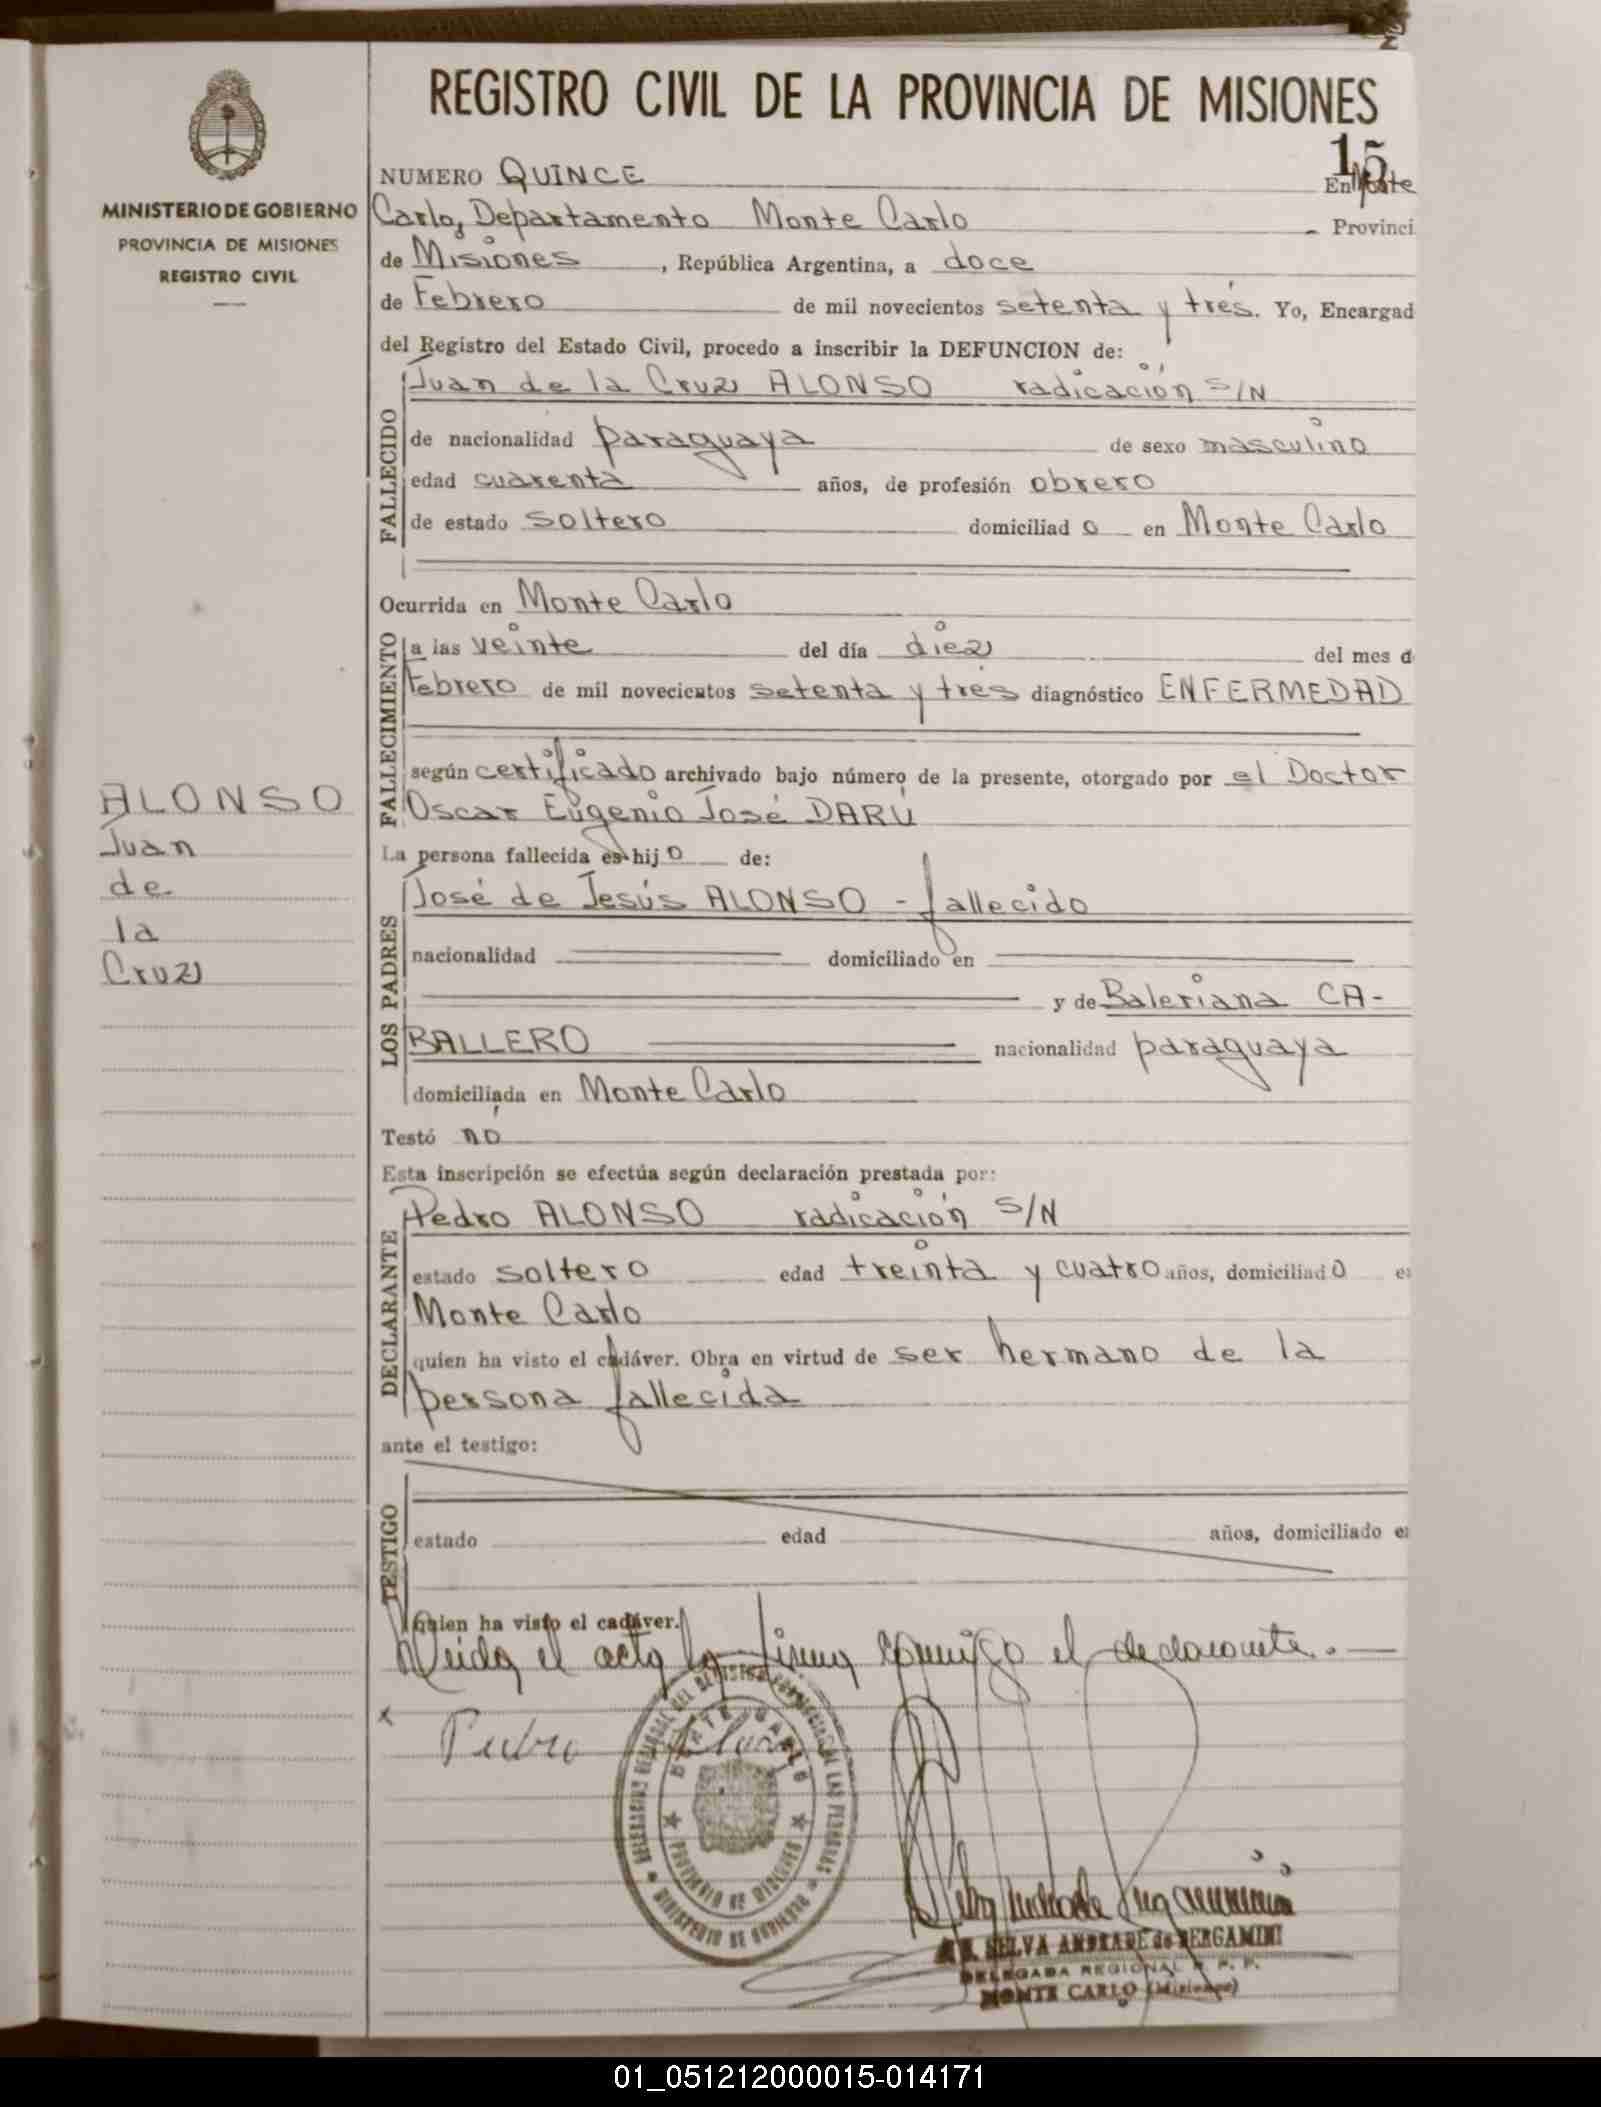 REGISTRO CIVIL DE LA PROVINCIA DE MISIONES
MINISTERIO DE GOBIERNO
PROVINCIA DE MISIONES
REGISTRO CIVIL
ALONSO
Juan
de
la
Cruz
15
NUMERO QUINCE En Monte
Carlo, Departamento Monte Carlo Provinci
de Misiones, República Argentina, a doce
de Febrero de mil novecientos setenta y tres. Yo, Encargad
del Registro del Estado Civil, procedo a inscribir la DEFUNCION de:
FALLECIDO
Juan de la Cruz ALONSO radicación S/N
de nacionalidad paraguaya de sexo masculino
edad cuarenta años, de profesión obrero
de estado soltero domiciliad o en Monte Carlo
Ocurrida en Monte Carlo
FALLECIMIENTO
a las veinte del día diez del mes d
Febrero de mil novecientos setenta y tres diagnóstico ENFERMEDAD
según certificado archivado bajo número de la presente, otorgado por el Doctor
Oscar Eugenio José DARÚ
La persona fallecida es hij o de:
LOS PADRES
José de Jesús ALONSO - fallecido
nacionalidad domiciliado en
y de Baleriana CA-
BALLERO nacionalidad paraguaya
domiciliada en Monte Carlo
Testó nó
Esta inscripción se efectúa según declaración prestada por:
DECLARANTE
Pedro ALONSO radicación S/N
estado soltero edad treinta y cuatro años, domiciliado e
Monte Carlo
quien ha visto el cadáver. Obra en virtud de ser hermano de la
persona fallecida
ante el testigo:
TESTIGO
estado edad años, domiciliado e
quien ha visto el cadáver.
Leida el acta la firma conmigo el declarante. —
x Pedro Alonso
MONTE CARLO
PROVINCIA DE MISIONES
MINISTERIO DE GOBIERNO
SELVA ANDRADE de BERGAMINI
DELEGADA REGIONAL R. P. P.
MONTE CARLO (Misiones)
01_051212000015-014171